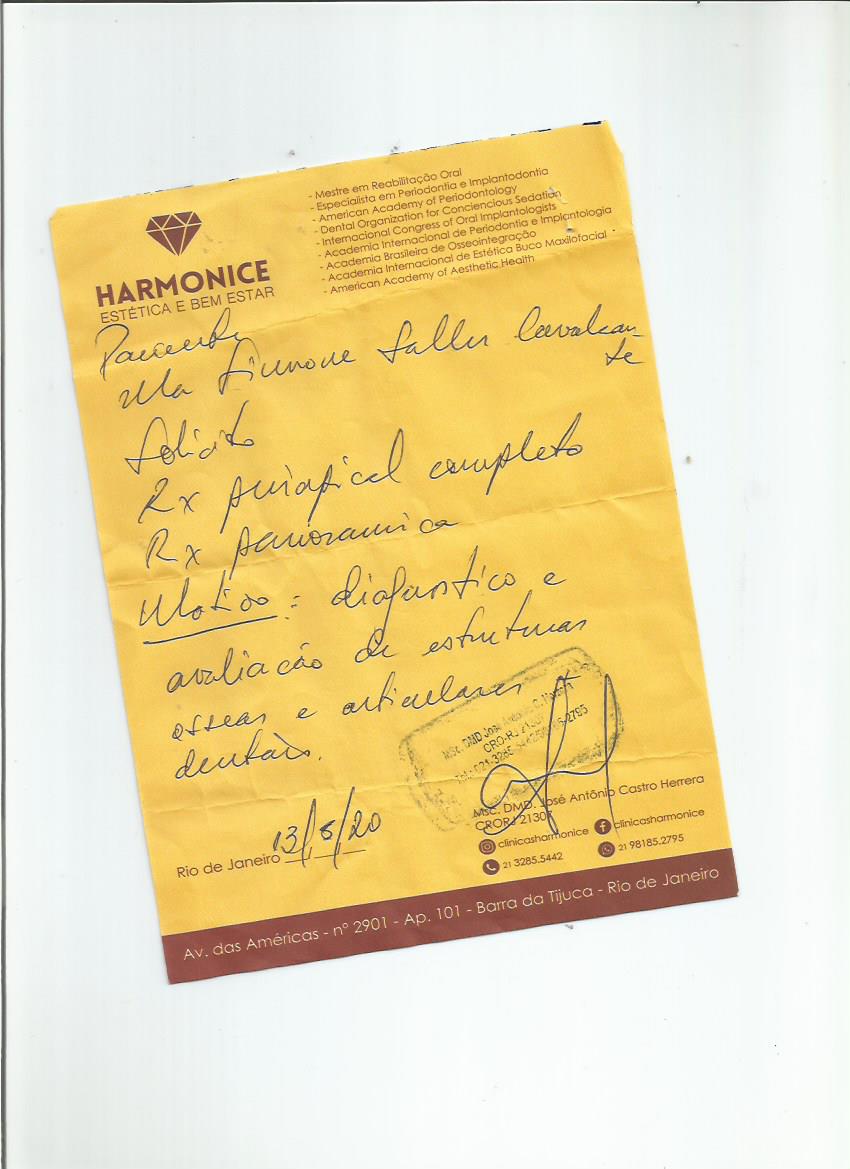 HARMONICE
ESTÉTICA E BEM ESTAR
- Mestre em Reabilitação Oral
- Especialista em Periodontia e Implantodontia
- American Academy of Periodontology
- Dental Organization for Conciencious Sedation
- Internacional Congress of Oral Implantologists
- Academia Internacional de Periodontia e Implantologia
- Academia Brasileira de Osseointegração
- Academia Internacional de Estética Buco Maxilofacial
- American Academy of Aesthetic Health
Paciente
Ma Simone Salles Cavalcan-
te
Solicito
Rx periapical completo
Rx panoramica
Motivo: diagnostico e
avaliação de estruturas
osseas e articulares +
dentais.
Msc. DMD José
CRO-RJ 2130
Msc. DMD. José Antônio Castro Herrera
CRORJ 21307
clinicasharmonice clinicasharmonice
21 3285.5442 21 98185.2795
Rio de Janeiro 13/5/20
Av. das Américas - nº 2901 - Ap. 101 - Barra da Tijuca - Rio de Janeiro